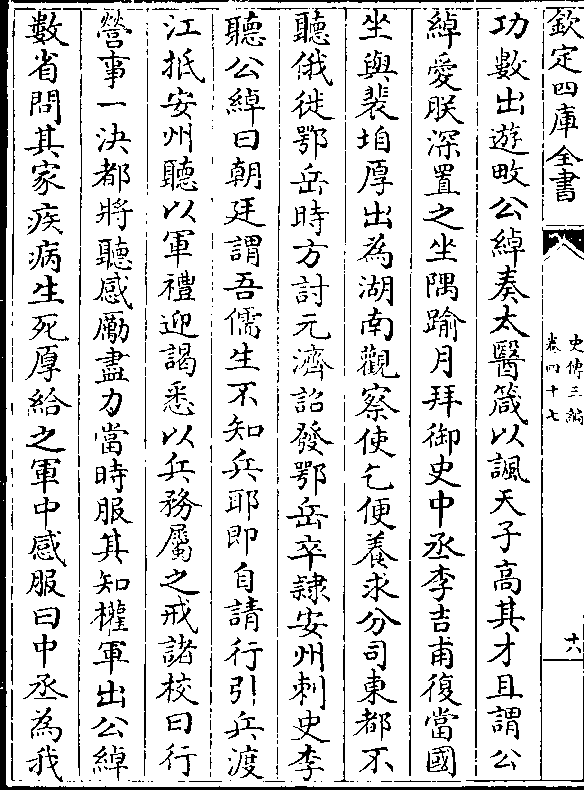 欽定四庫全書
史傳三編
卷四十七
十八
功數出遊畋公綽奏太醫箴以諷天子高其才且謂公
綽愛朕深置之坐隅踰月拜御史中丞李吉甫復當國
坐與裴垍厚出為湖南觀察使乞便養求分司東都不
聽俄徙鄂岳時方討元濟詔發鄂岳卒隷安州刺史李
聽公綽曰朝廷謂吾儒生不知兵耶即自請行引兵渡
江抵安州聽以軍禮迎謁悉以兵務屬之戒諸校曰行
營事一決都將聽感厲盡力當時服其知權軍出公綽
數省問其家疾病生死厚給之軍中感服曰中丞為我